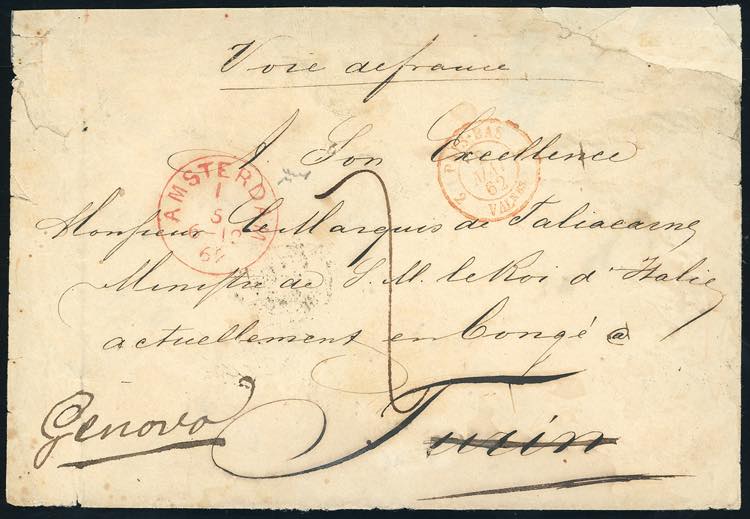 Voie de france
A Son Excellence
Monsieur le Marquis de Taliacarne
Ministre de S. M. le Roi d'Italie
actuellement en Congé a
Turin
Genova
AMSTERDAM
1
5
6-10
62
PAYS-BAS
MAI
62
VALnes
2